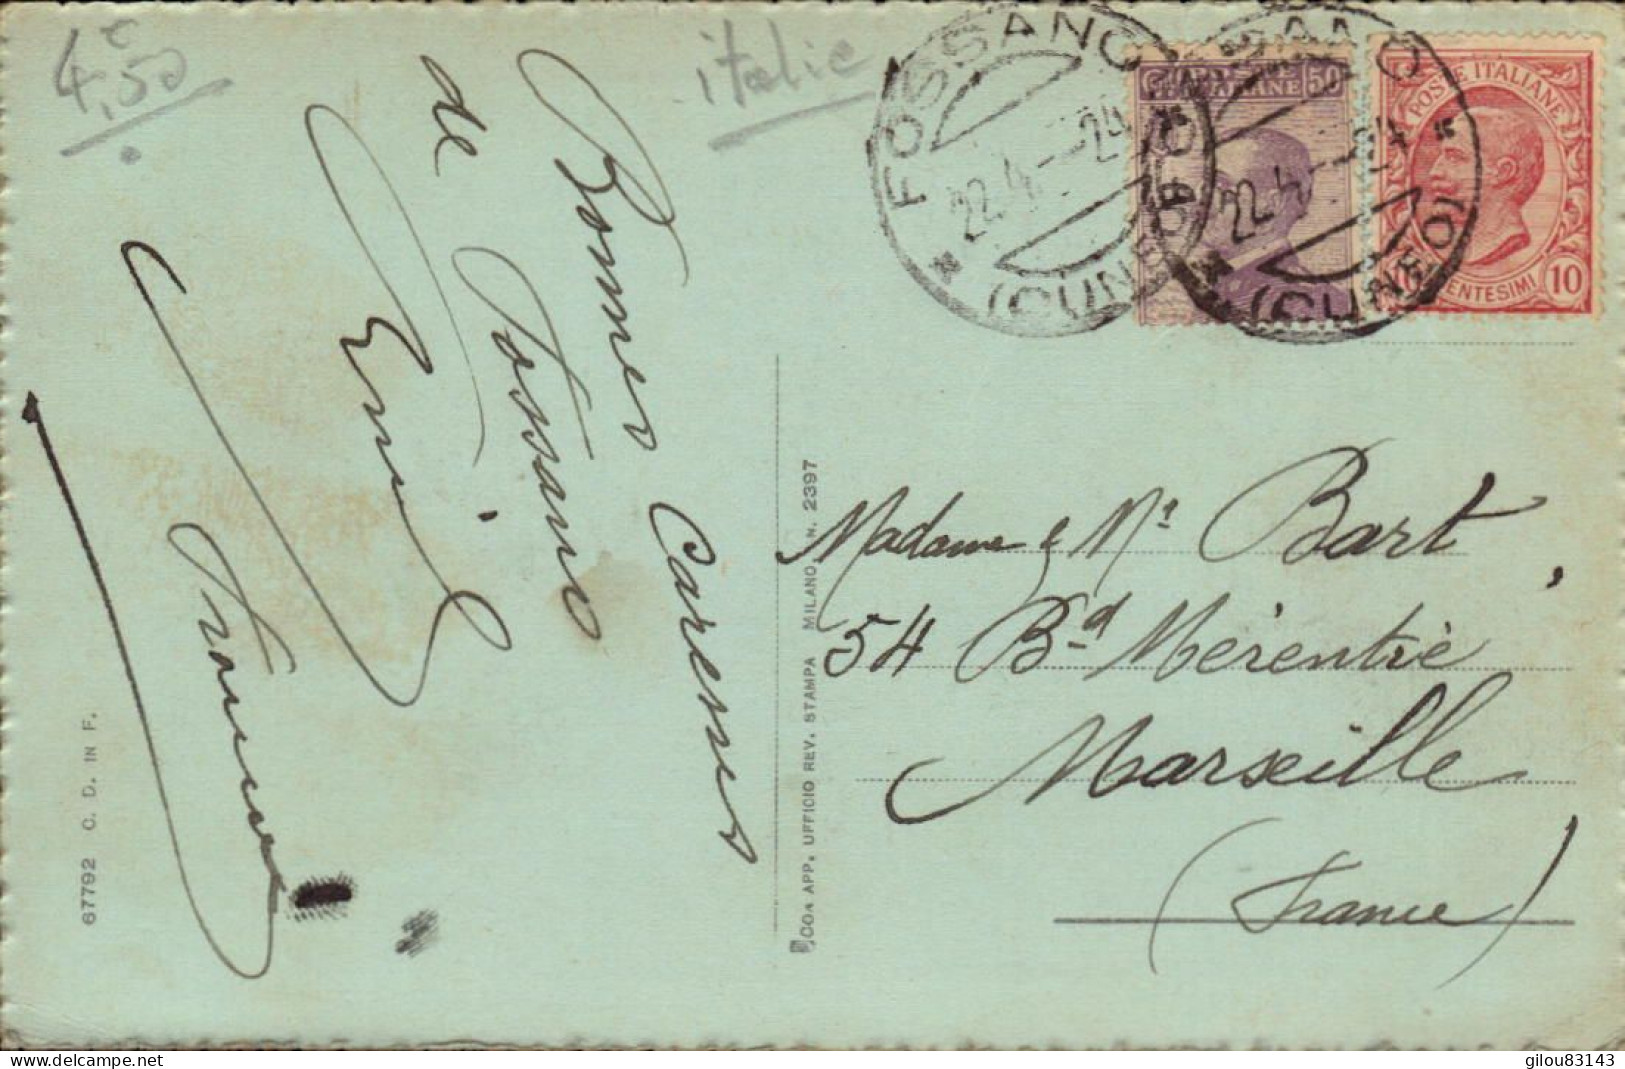 4€,50
italie
FOSSANO
22.4.24
(CUNEO)
FOSSANO
22.4.24
(CUNEO)
POSTE ITALIANE 50
POSTE ITALIANE
10 CENTESIMI 10
Bonnes Caresses
de Fossano
Emile
67792 C. D. IN F.
COA APP. UFFICIO REV. STAMPA MILANO, N. 2397
Madame & Mr Bart,
54 Bd Mérentié
Marseille
(France)
delcampe.net
gilou83143